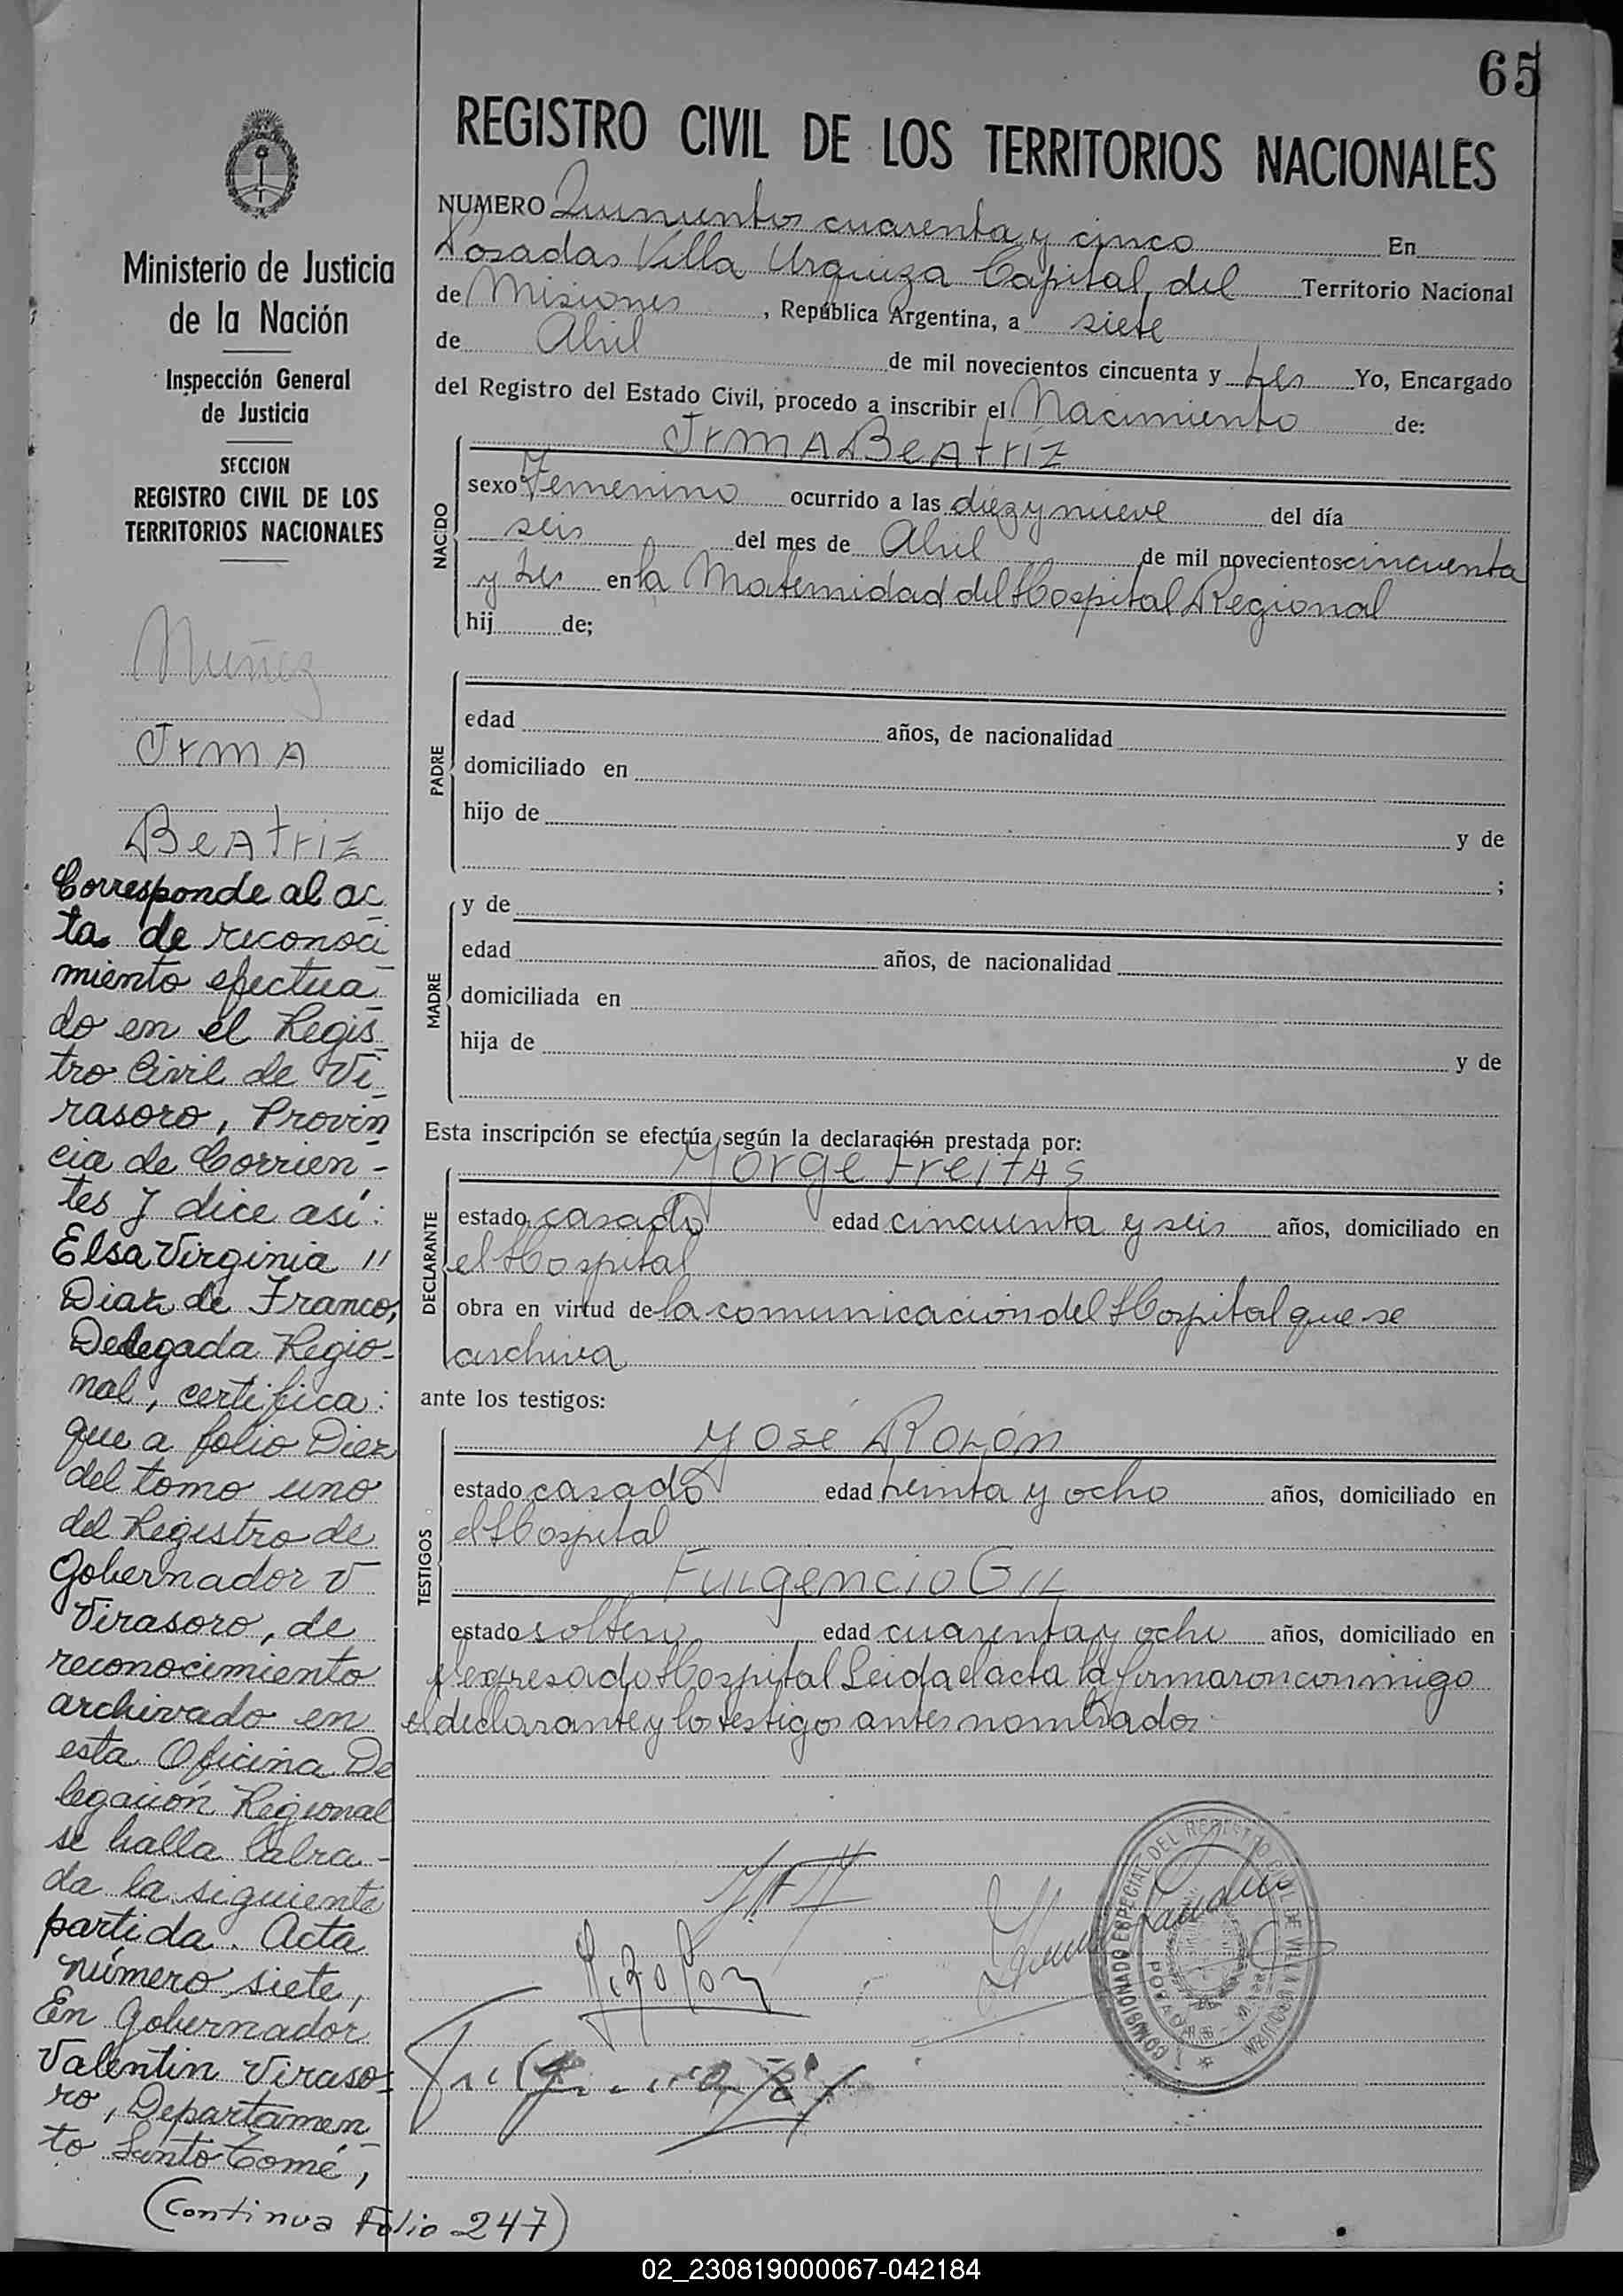 65
REGISTRO CIVIL DE LOS TERRITORIOS NACIONALES
NUMERO Quinientos cuarenta y cinco En
Posadas Villa Urquiza Capital del Territorio Nacional
de Misiones, República Argentina, a siete
de Abril de mil novecientos cincuenta y tres Yo, Encargado
del Registro del Estado Civil, procedo a inscribir el Nacimiento de:
NACIDO
Irma Beatriz
sexo Femenino ocurrido a las diez y nueve del día
seis del mes de Abril de mil novecientos cincuenta
y tres en la Maternidad del Hospital Regional
hij de;
PADRE
edad años, de nacionalidad
domiciliado en
hijo de y de
;
MADRE
y de
edad años, de nacionalidad
domiciliada en
hija de y de
Esta inscripción se efectúa según la declaración prestada por:
DECLARANTE
Jorge Freitas
estado casado edad cincuenta y seis años, domiciliado en
el Hospital
obra en virtud de la comunicación del Hospital que se
archiva
ante los testigos:
TESTIGOS
José Rolón
estado casado edad treinta y ocho años, domiciliado en
el Hospital
Fulgencio Gil
estado soltero edad cuarenta y ocho años, domiciliado en
el expresado Hospital Leida el acta la firmaron conmigo
el declarante y los testigos antes nombrados
COMISIONADO ESPECIAL DEL REGISTRO CIVIL DE VILLA URQUIZA
POSADAS
Ministerio de Justicia
de la Nación
Inspección General
de Justicia
SECCION
REGISTRO CIVIL DE LOS
TERRITORIOS NACIONALES
Nuñez
Irma
Beatriz
Corresponde al ac
ta de reconoci
miento efectua
do en el Regis
tro Civil de Vi
rasoro, Provin
cia de Corrien-
tes y dice así:
Elsa Virginia "
Diaz de Franco,
Delegada Regio-
nal, certifica:
que a folio Diez
del tomo uno
del Registro de
Gobernador V
Virasoro, de
reconocimiento
archivado en
esta Oficina De
legación Regional
se halla labra-
da la siguiente
partida. Acta
número siete,
En Gobernador
Valentin Viraso-
ro, Departamen
to Santo Tomé,
(Continua Folio 247)
02_230819000067-042184